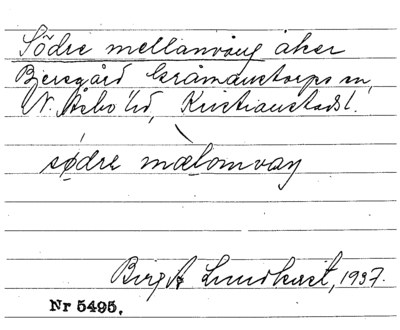 Södre mellanvång åker
Bjersgård Gråmanstorps sn,
N. Åsbo hd, Kristianstads l.
södre mælomvaŋ
Birgit Lundkvist, 1937.
Nr 5495.